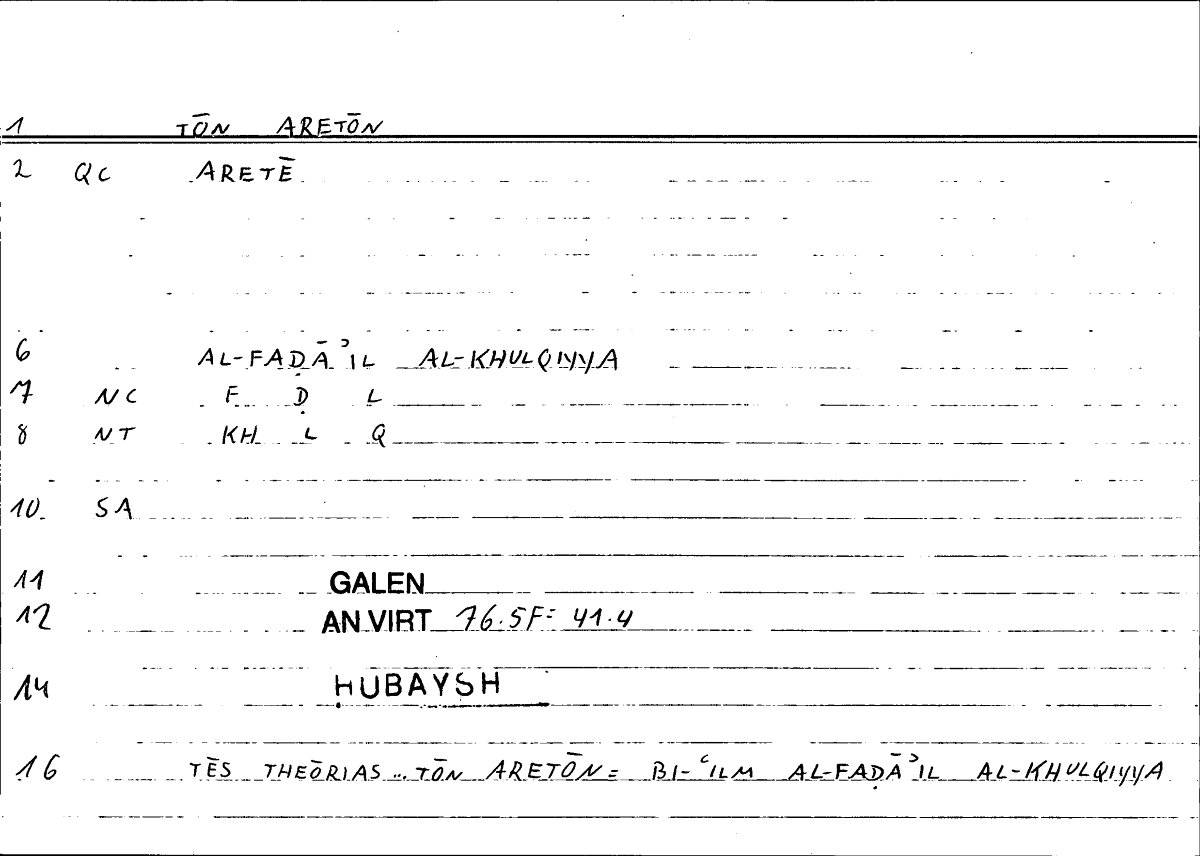 1 TŌN ARETŌN
2 QC ARETĒ
6 AL-FAḌĀʾIL AL-KHULQIYYA
7 NC F Ḍ L
8 NT KH L Q
10 SA
11 GALEN
12 AN VIRT 76.5F= 41.4
14 ḤUBAYSH
16 TĒS THEŌRIAS... TŌN ARETŌN = BI-ʿILM AL-FAḌĀʾIL AL-KHULQIYYA